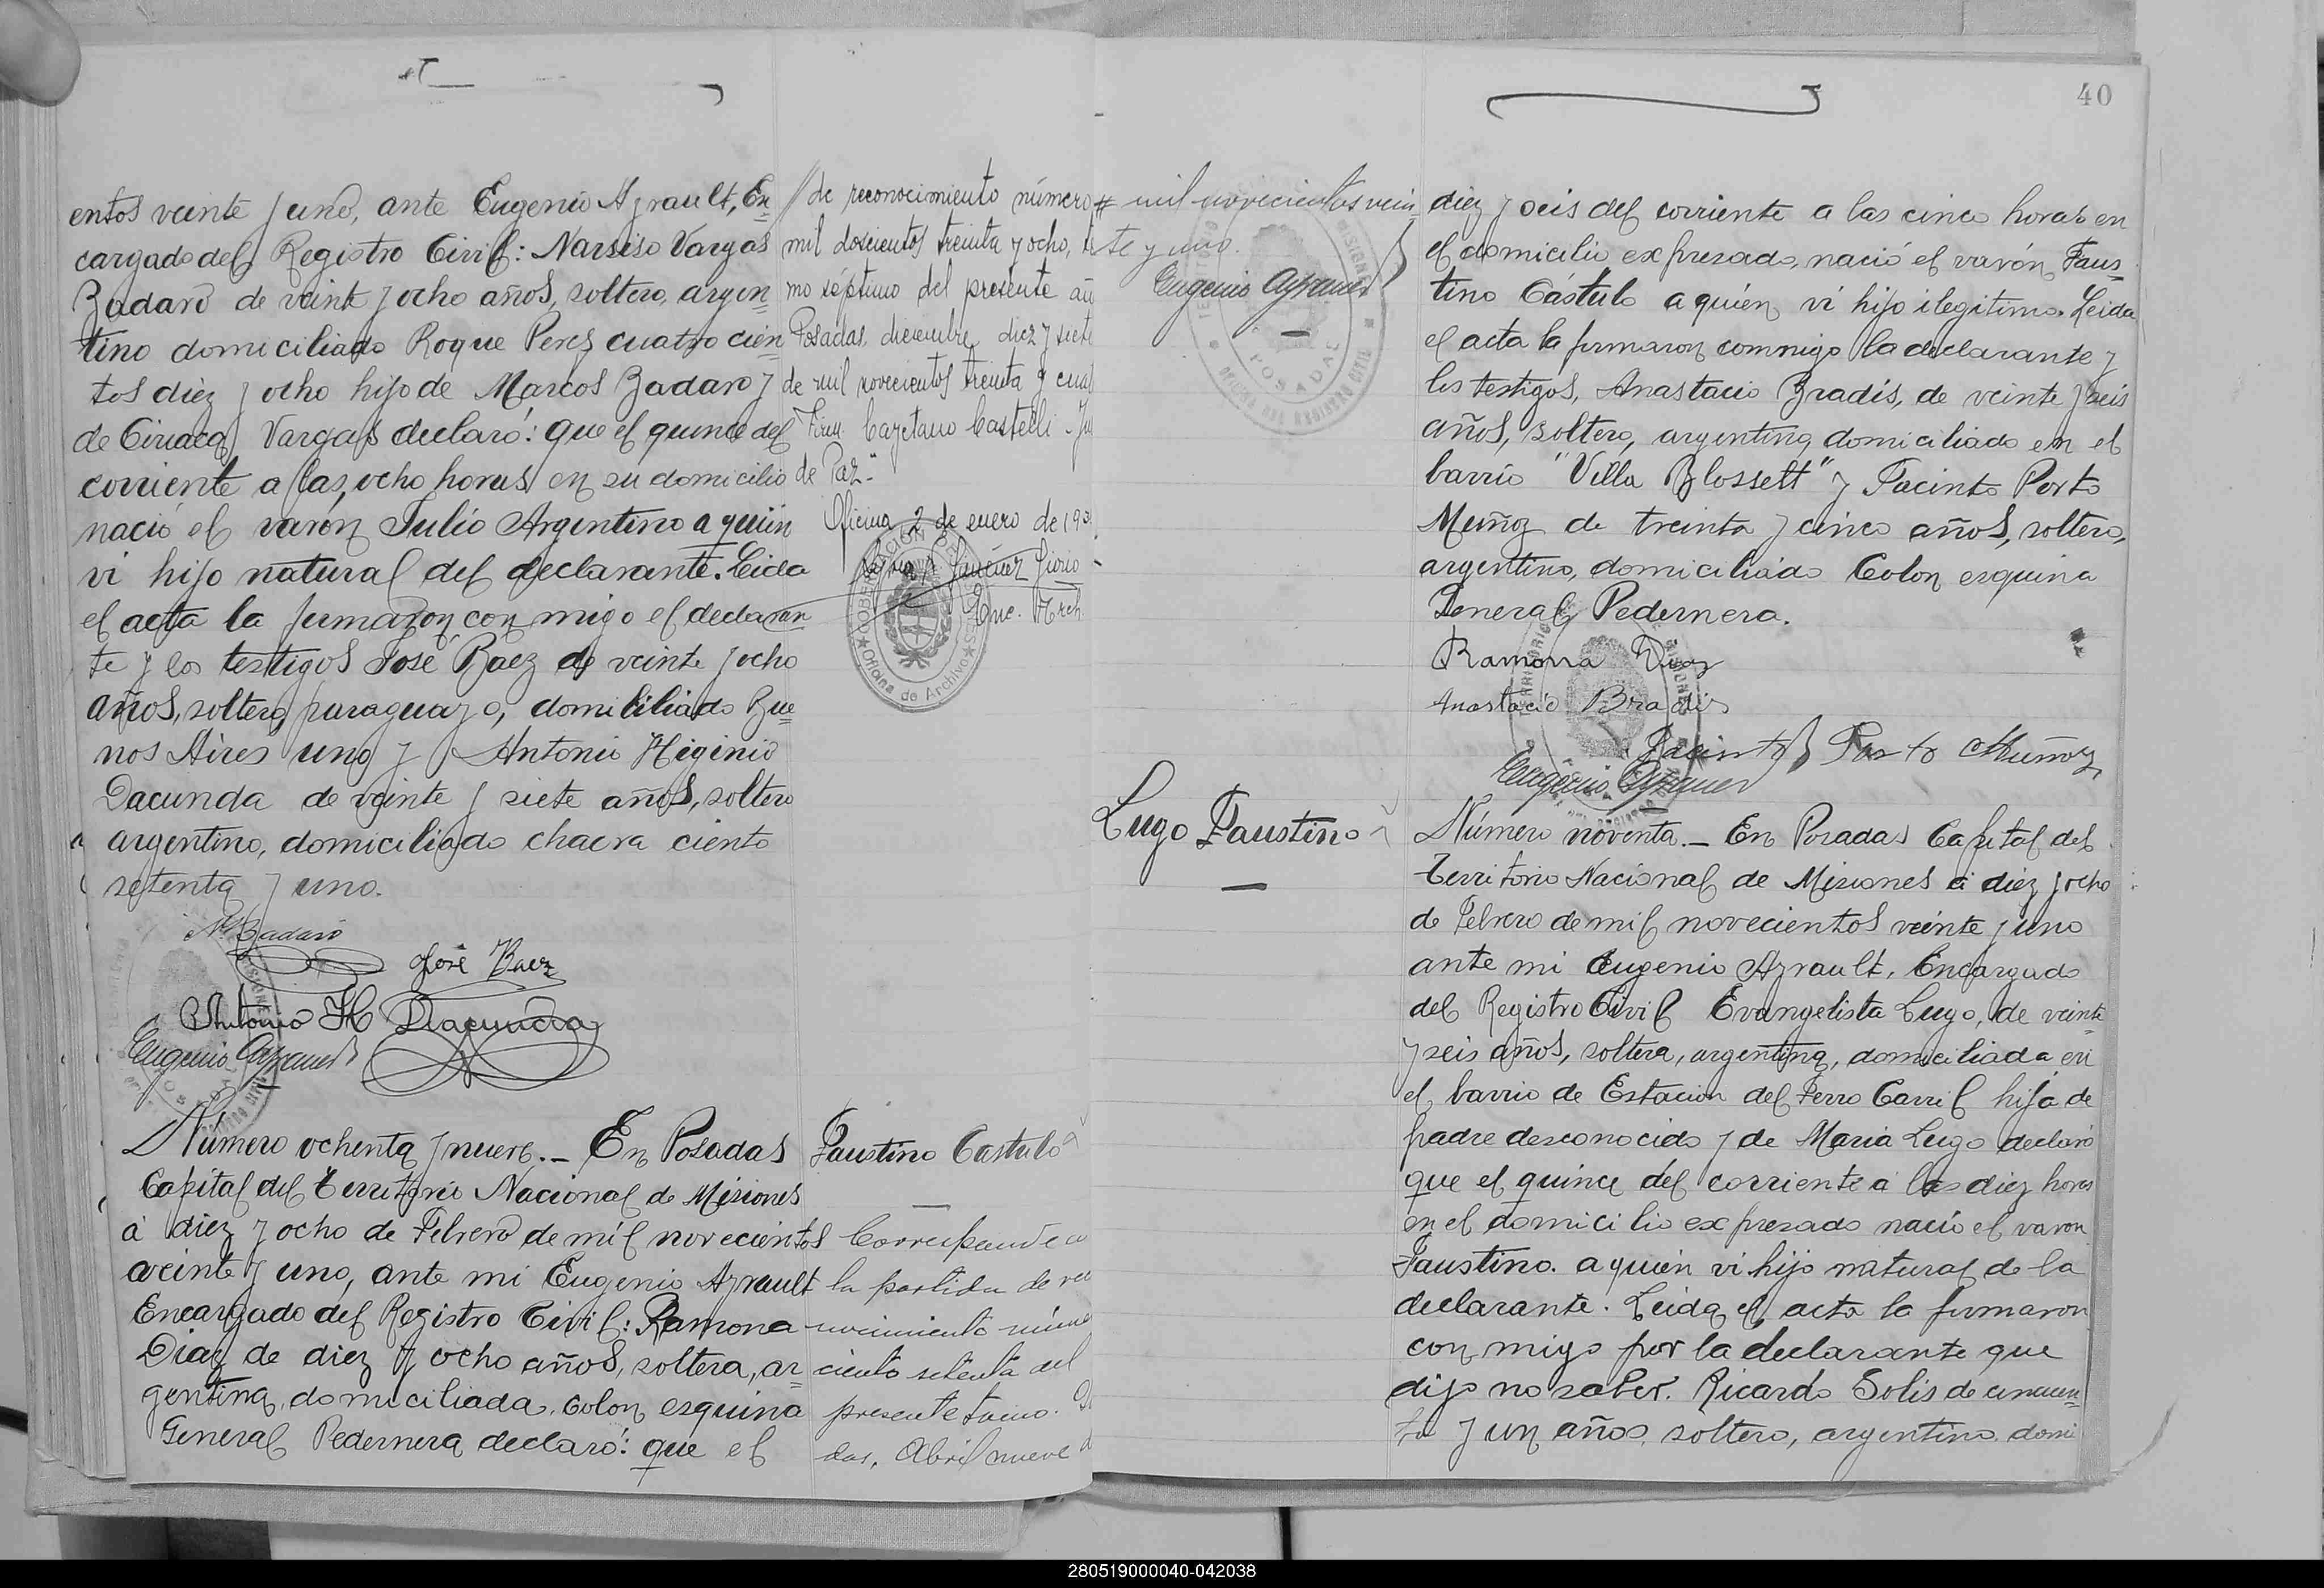 entos veinte y uno, ante Eugenio Ayrault, En=
cargado del Registro Civil: Narsiso Vargas
Badaro de veinte y ocho años, soltero, argen
tino domiciliado Roque Perez cuatro cien
tos diez y ocho hijo de Marcos Badaro y
de Ciriaca Vargas declaró: que el quince del
corriente a las ocho horas en su domicilio
nació el varón Julio Argentino a quien
vi hijo natural del declarante. Leida
el acta la firmaron con migo el declaran
te y los testigos José Baez de veinte y ocho
años, soltero, paraguayo, domililiado Bue=
nos Aires uno y Antonio Higinio
Dacunda de veinte y siete años, soltero
argentino, domiciliado chacra ciento
setenta y uno.
N. Badaró
José Baez
Antonio H Dacunda
Eugenio Ayrault
// de reconocimiento número
mil doscientos treinta y ocho, to
mo séptimo del presente añ
Posadas, diciembre diez y siete
de mil novecientos treinta y cuat
Firm. Cayetano Castelli - Ju
de Paz."
Oficina 2 de enero de 193
Enc. Arch.
GOBERNACIÓN DE MISIONES
Oficina de Archivo
Número ochenta y nueve. - En Posadas
Capital del Territorio Nacional de Misiones
á diez y ocho de Febrero de mil novecientos
veinte y uno, ante mi Eugenio Ayrault
Encargado del Registro Civil: Ramona
Diaz de diez y ocho años, soltera, ar=
gentina, domiciliada, Colon esquina
General Pedernera declaró: que el
Faustino Castulo
Corresponde a
la partida de rec
nocimiento núme
ciento setenta del
presente tomo. Po
das, Abril nueve d
40
# mil novecientos vein=
te y uno.
Eugenio Ayrault
POSADAS
OFICINA DEL REGISTRO CIVIL
diez y seis del corriente a las cinco horas en
el domicilio expresado, nació el varón Faus=
tino Cástulo a quién vi hijo ilegitimo. Leida
el acta la firmaron conmigo la declarante y
los testigos, Anastacio Bradis, de veinte y seis
años, soltero, argentino, domiciliado en el
barrio "Villa Blossett" y Jacinto Porto
Muñoz de treinta y cinco años, soltero,
argentino, domiciliado Colon esquina
General Pedernera.
Ramona Diaz
Anastacio Bradis
Jacinto Porto Muñoz
Eugenio Ayrault
Lugo Faustino
Número noventa. - En Posadas Capital del
Territorio Nacional de Misiones á diez y ocho
de Febrero de mil novecientos veinte y uno
ante mi Eugenio Ayrault, Encargado
del Registro Civil Evangelista Lugo, de veinte
y seis años, soltera, argentina, domiciliada en
el barrio de Estacion del Ferro Carril hija de
padre desconocido y de Maria Lugo declaró
que el quince del corriente a las diez horas
en el domicilio expresado nació el varon
Faustino. a quién vi hijo natural de la
declarante. Leida el acta la firmaron
con migo por la declarante que
dijo no saber. Ricardo Solis de cincuen=
ta y un años, soltero, argentino, domi
280519000040-042038